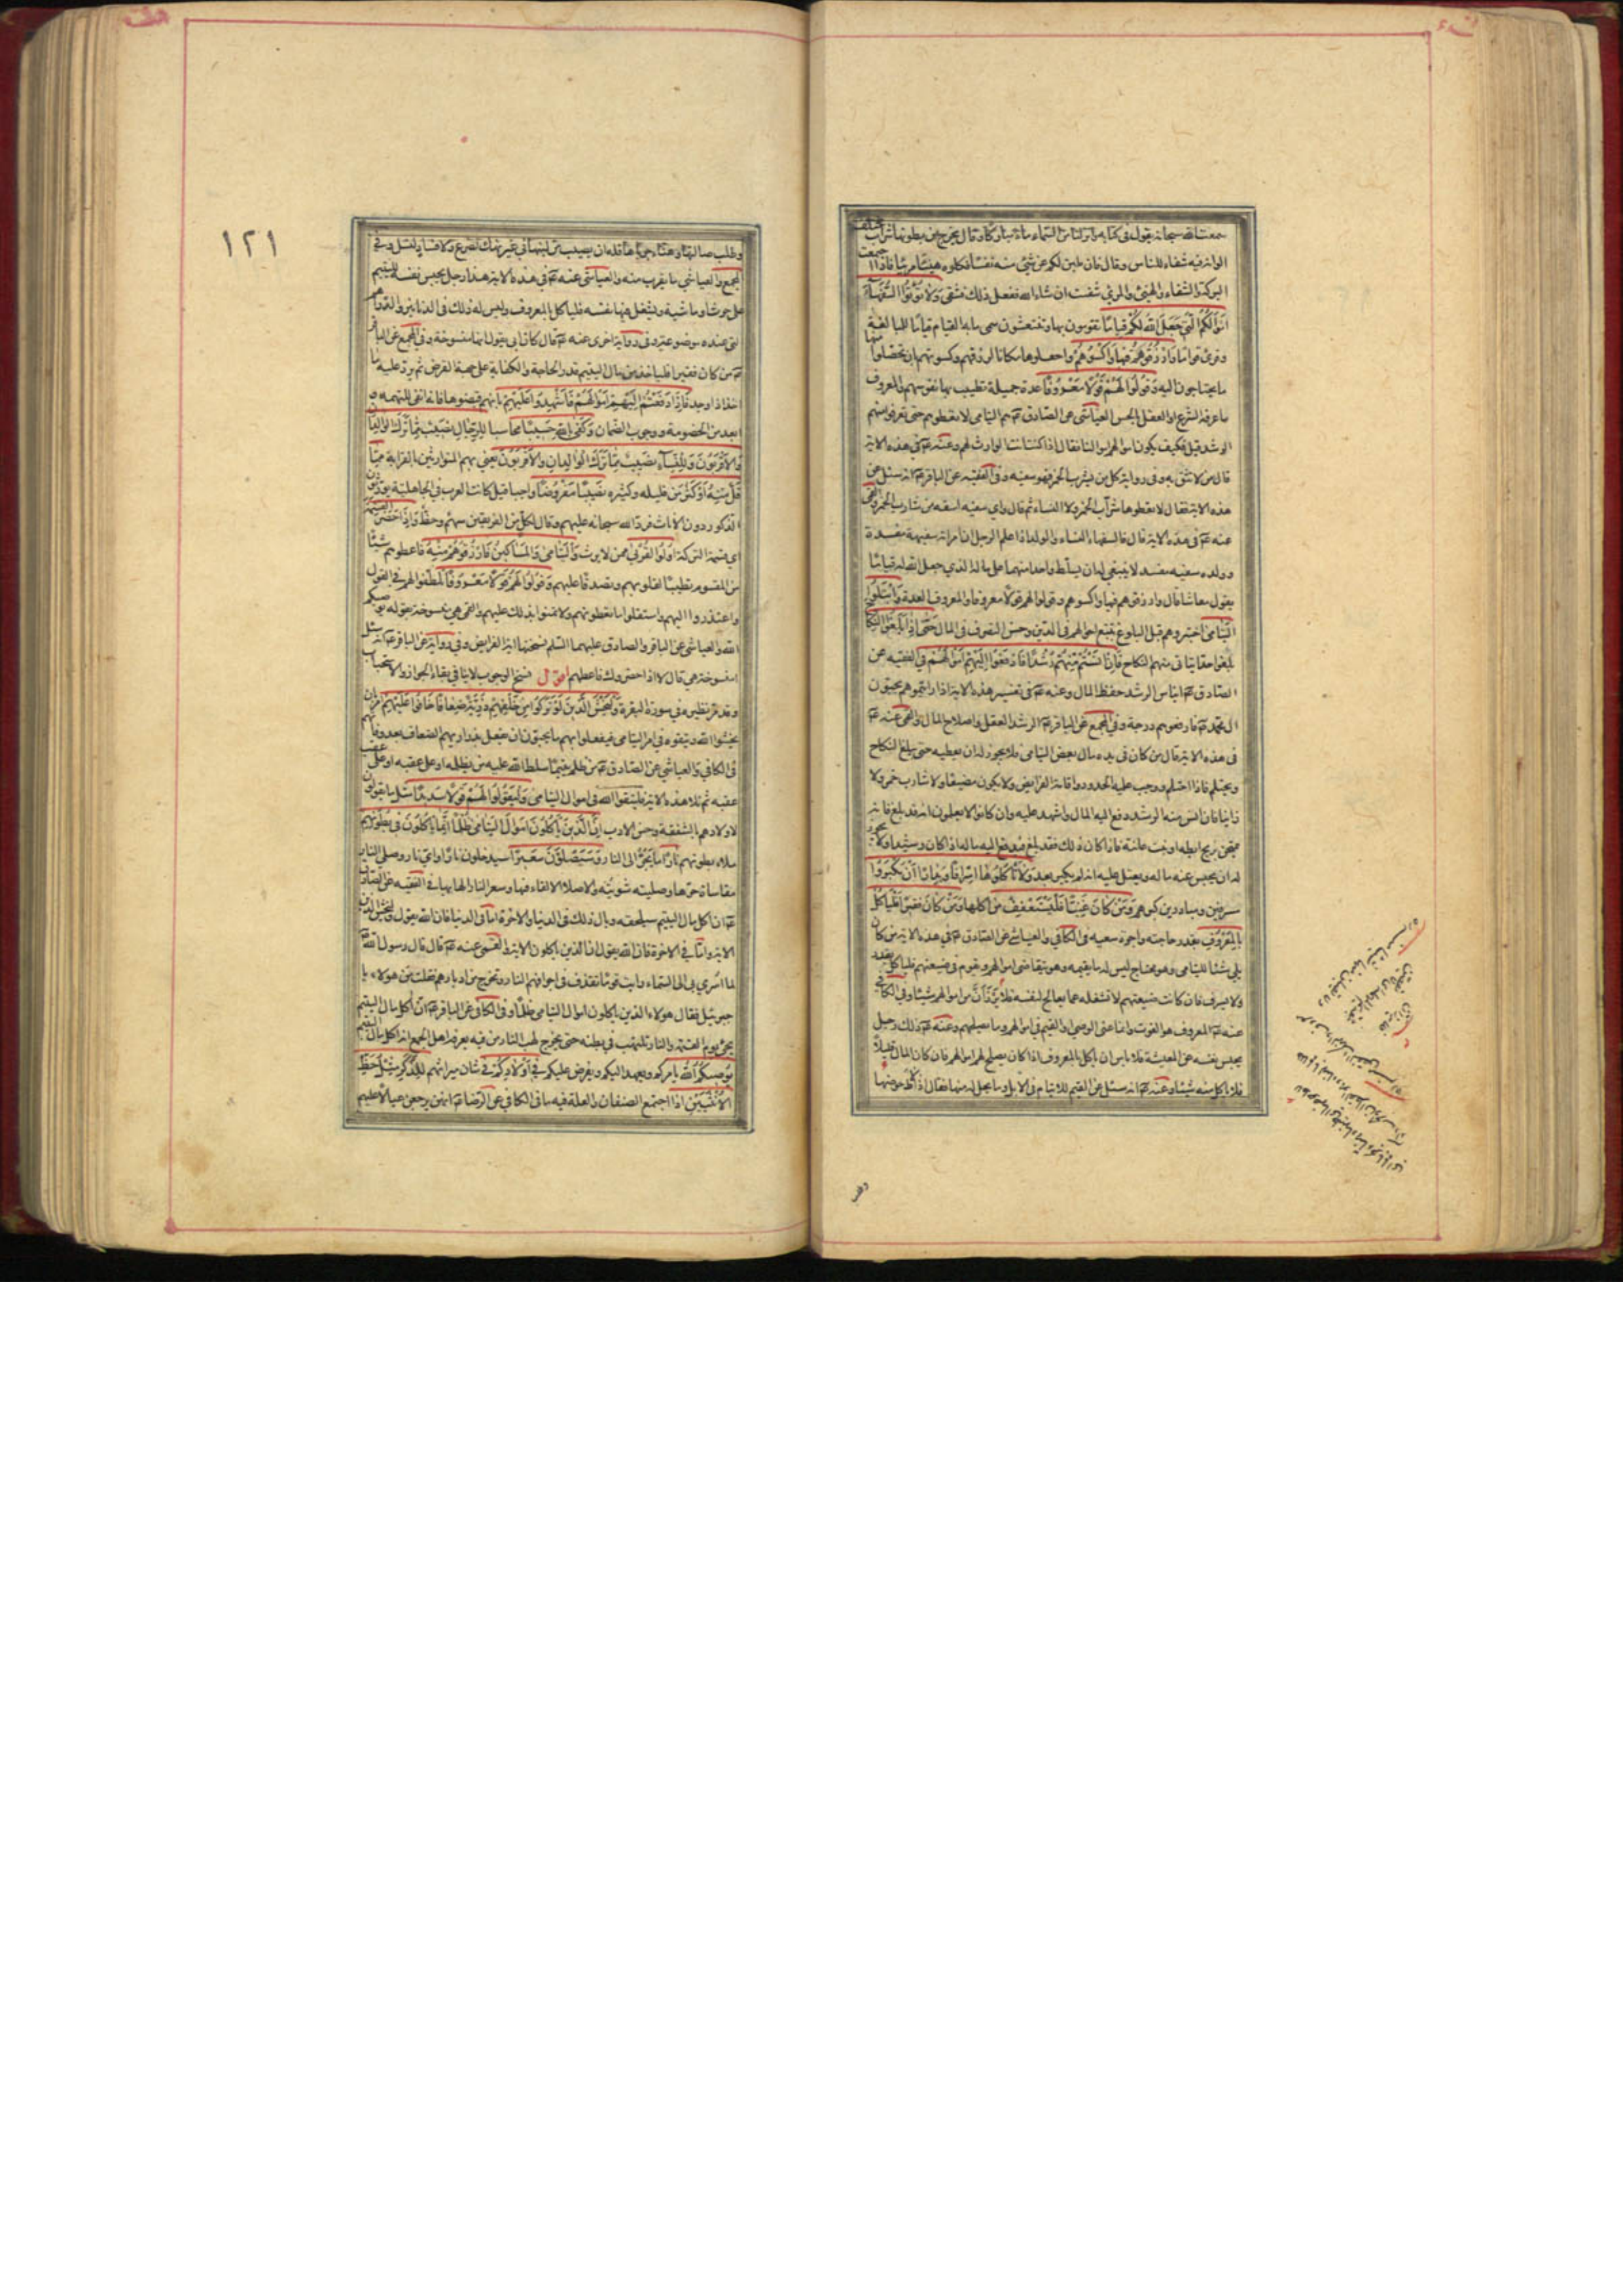 سمعت الله سبحانه يقول في كتابه وانزلنا من السماء ماء مباركا وقال يخرج من بطونها شراب مختلف
الوانه فيه شفاء للناس وقال فان طبن لكم عن شئ منه نفسا فكلوه هنيئا مريئا فاذا اجتمعت
البركة والشفاء والهنئ والمرئ شفيت ان شاء الله ففعل ذلك فشفى ولا تؤتوا السفهاء
اموالكم التي جعل الله لكم قياما تقومون بها وتنتعشون سمي ما به القيام قياما للمبالغة
وقرئ قيما وارزقوهم فيها واكسوهم واجعلوها مكانا لرزقهم وكسوتهم بان تحصلوا منها
ما يحتاجون اليه وقولوا لهم قولا معروفا عدة جميلة تطيب بها نفوسهم والمعروف
ما عرفه الشرع او العقل بالحسن العياشي عن الصادق هم اليتامى لا تعطوهم حتى تعرفوا منهم
الرشد قيل فكيف يكون اموالهم اموالنا فقال اذا كنت انت الوارث لهم وعنه في هذه الاية
قال من لا تثق به وفي رواية كل من يشرب الخمر فهو سفيه وفي الفقيه عن الباقر انه سئل عن
هذه الاية فقال لا تعطوها شراب الخمر ولا النساء ثم قال واي سفيه اسفه من شارب الخمر والقمي
عنه في هذه الاية قال فالسفهاء النساء والولد اذا علم الرجل ان امراته سفيهة مفسدة
وولده سفيه مفسد لا ينبغي له ان يسلط واحدا منهما على ماله الذي جعل الله له قياما
يقول معاشا قال وارزقوهم فيها واكسوهم وقولوا لهم قولا معروفا والمعروف العدة وابتلوا
اليتامى اختبروهم قبل البلوغ بتتبع احوالهم في الدين وحسن التصرف في المال حتى اذا بلغوا النكاح
بلغوا حدا يتأتى منهم النكاح فان انستم منهم رشدا فادفعوا اليهم اموالهم في الفقيه عن
الصادق ايناس الرشد حفظ المال وعنه في تفسير هذه الاية اذا رايتموهم يحبون
ال محمد فارفعوهم درجة وفي المجمع عن الباقر الرشد العقل واصلاح المال والقمي عنه
في هذه الاية قال من كان في يده مال بعض اليتامى فلا يجوز له ان يعطيه حتى يبلغ النكاح
ويحتلم فاذا احتلم ووجب عليه الحدود واقامة الفرايض ولا يكون مضيعا ولا شارب خمر ولا
زانيا فاذا انس منه الرشد دفع اليه المال واشهد عليه وان كانوا لا يعلمون انه قد بلغ فانه
يمتحن بريح ابطه او نبت عانته فاذا كان ذلك فقد بلغ فيدفع اليه ماله اذا كان رشيدا ولا يجوز
له ان يحبس عنه ماله ويعتل عليه انه لم يكبر بعد ولا تاكلوها اسرافا وبدارا ان يكبروا
مسرفين ومبادرين كبرهم ومن كان غنيا فليستعفف من اكلها ومن كان فقيرا فلياكل
بالمعروف بقدر حاجته واجرة سعيه في الكافي والعياشي عن الصادق في هذه الاية من كان
يلي شيئا لليتامى وهو محتاج ليس له ما يقيمه وهو يتقاضى اموالهم ويقوم في ضيعتهم فلياكل بقدر
ولا يسرف فان كانت ضيعتهم لا تشغله عما يعالج لنفسه فلا يرزأن من اموالهم شيئا وفي الكافي
عنه المعروف هو القوت وانما عنى الوصي او القيم في اموالهم وما يصلحهم وعنه ذلك رجل
يحبس نفسه عن المعيشة فلا باس ان ياكل بالمعروف اذا كان يصلح لهم اموالهم فان كان المال قليلا
فلا ياكل منه شيئا وعنه انه سئل عن القيم للايتام في الابل وما يحل له منها فقال اذا لاط حوضها
وطلب ضالتها وهنأ جرباها فله ان يصيب من لبنها في غير نهك لضرع ولا فساد لنسل وفي
المجمع والعياشي ما يقرب منه والعياشي عنه في هذه الاية هذا رجل يحبس نفسه لليتيم
على حرث او ماشية ويشغل فيها نفسه فلياكل بالمعروف وليس له ذلك في الدنانير والدراهم
التي عنده موضوعة وفي رواية اخرى عنه قال كان ابي يقول انها منسوخة وفي المجمع عن الباقر
من كان فقيرا فلياخذ من مال اليتيم قدر الحاجة والكفاية على جهة القرض ثم يرد عليه ما
اخذ اذا وجد فاذا دفعتم اليهم اموالهم فاشهدوا عليهم بانهم قبضوها فانه انفى للتهمة و
ابعد من الخصومة ووجوب الضمان وكفى بالله حسيبا محاسبا للرجال نصيب مما ترك الوالدان
والاقربون وللنساء نصيب مما ترك الوالدان والاقربون يعني بهم المتوارثين بالقرابة مما
قل منه او كثر من قليله وكثيره نصيبا مفروضا واجبا قيل كانت العرب في الجاهلية يورثون
الذكور دون الاناث فرد الله سبحانه عليهم وقال لكل من الفريقين سهم وحظ واذا حضر القسمة
اي قسمة التركة اولوا القربى ممن لا يرث واليتامى والمساكين فارزقوهم منه فاعطوهم شيئا
من المقسوم تطييبا لقلوبهم وتصدقا عليهم وقولوا لهم قولا معروفا تلطفوا لهم في القول
واعتذروا اليهم واستقلوا ما تعطونهم ولا تمنوا بذلك عليهم والقمي هي منسوخة بقوله يوصيكم
الله والعياشي عن الباقر والصادق عليهما السلم نسختها اية الفرايض وفي رواية عن الباقر انه سئل
امنسوخة هي قال لا اذا حضروك فاعطهم اقول نسخ الوجوب لا ينافي بقاء الجواز والاستحباب
وقد مر نظيره في سورة البقرة وليخش الذين لو تركوا من خلفهم ذرية ضعافا خافوا عليهم
يخشوا الله ويتقوه في امر اليتامى فيفعلوا بهم ما يحبون ان يفعل بذراريهم الضعاف بعد وفاتهم
في الكافي والعياشي عن الصادق من ظلم يتيما سلط الله عليه من يظلمه او على عقبه او على عقب
عقبه ثم تلا هذه الاية فليتقوا الله في اموال اليتامى وليقولوا لهم قولا سديدا مثل ما يقولون
لاولادهم بالشفقة وحسن الادب ان الذين ياكلون اموال اليتامى ظلما انما ياكلون في بطونهم
ملاء بطونهم نارا ما يجر الى النار وسيصلون سعيرا سيدخلون نارا واي نار وصلي النار
مقاساة حرها وصليته شويته والاصلاء الالقاء فيها وسعر النار الهابها في الفقيه عن الصادق
ان اكل مال اليتيم سيلحقه وبال ذلك في الدنيا والاخرة اما في الدنيا فان الله يقول وليخش الذين
الاية واما في الاخرة فان الله يقول ان الذين ياكلون الاية والقمي عنه قال قال رسول الله
لما اسري بي الى السماء رايت قوما تقذف في اجوافهم النار وتخرج من ادبارهم فقلت من هولاء يا
جبرئيل فقال هولاء الذين ياكلون اموال اليتامى ظلما وفي الكافي عن الباقر ان اكل مال اليتيم
يجئ يوم القيمة والنار تلتهب في بطنه حتى يخرج لهب النار من فيه يعرفه اهل الجمع انه اكل مال اليتيم
يوصيكم الله يامركم ويعهد اليكم ويفرض عليكم في اولادكم في شان ميراثهم للذكر مثل حظ
الانثيين اذا اجتمع الصنفان والعلة فيه ما في الكافي عن الرضا انهن يرجعن عيالا عليهم
١٢١